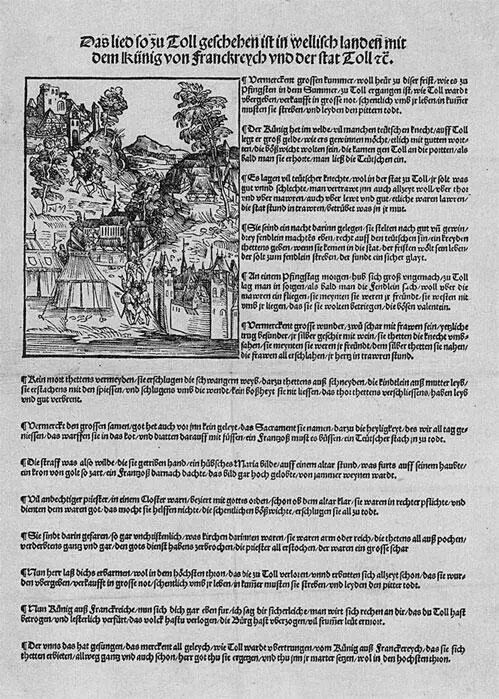 Das lied so zu Toll geschehen ist in wellisch landen mit
dem Künig von Franckreych vnd der stat Toll ꝛc.
¶ Vermerckent grossen kummer, woll heür zu diser frist, wie es zu
Pfingsten in dem Summer, zu Toll ergangen ist, wie Toll wardt
vbergeben, verkaufft in grosse not, schentlich vmb je leben, in kum̃er
musten sie streben, vnd leyden den pittern todt.
¶ Der Künig het im velde, vil manchen teütschen knecht, auff Toll
legt er groß gelde, wie ers gewinnen möcht, etlich mit gutten wor-
ten, die bößwicht wolten sein, die kamen gen Toll an die portten, als
bald man sie erhorte, man ließ die Teütschen ein.
¶ Es lagen vil teütscher knechte, wol in der stat zu Toll, je solt was
gut vnnd schlechte, man vertrawet jnn auch allzeyt woll, vber thor
vnd vber mawren, auch vber lewt vnd gut, etliche waren lawren,
die stat stund in trawren, betrübet was jn jr mut.
¶ Sie seind ein nacht darinn gelegen, sie stelten nach gut vñ gewin,
drey fendlein machtẽs eben, recht auff den teütschen sin, ein kreyden
thettens geben, wenn sie kemen in die stat, der feisten wölt sein leben,
der solt zum fendlein streben, der fundt ein sicher glayt.
¶ An einem Pfingstag morgen, hub sich groß vngemach, zu Toll
lag man in sorgen, als bald man die Fendlein sach, woll vber die
mawren ein fliegen, sie meynten sie weren jr freünd, sie westen nit
vmb jr liegen, das sie sie wolten betriegen, die bösen valentein.
¶ Vermerckent grosse wunder, zwũ schar mit frawen sein, yetzliche
trug besunder, je silber geschir mit wein, sie thetten die knecht vmb-
fahen, sie meynten sie weren jr freündt, dem silber thetten sie nahen,
die frawen all erschlahen, jr hertz in trawren stund.
¶ Kein mort thettens vermeyden, sie erschlugen die schwangern weyb, darzu thettens auß schneyden, die kindlein auß mutter leyb,
sie erstachens mit den spiessen, vnd schlugens vmb die wende, kein boßheyt sie nit liessen, das thot thettens verschliessen, haben leyb
vnd gut verbrent.
¶ Vermerckt den grossen samen, got het auch vor jnn kein geleyt, das Sacrament sie namen, darzu die heyligkeyt, des wir all tag ge-
niessen, das warffen sie in das kot, vnd dratten darauff mit füssen, ein Frantzoß must es büssen, ein Teütscher stach jn zu todt.
¶ Die straff was also wilde, die sie gertiben hand, ein hübsches Maria bilde, auff einem altar stund, was furts auff seinem haubte,
ein kron von golt so zart, ein Frantzoß darnach dachte, das bild gar hoch gelobte, von jammer weynen wardt.
¶ Vil andechtiger priester, in einem Closter warn, beziert mit gottes orden, schon ob dem altar klar, sie waren in rechter pflichte, vnd
dienten dem waren got, das mocht sie helffen nichte, die schentlichen bößwichte, erschlugen sie all zu tod.
¶ Sie sindt darin gefaren, so gar vnchristenlich, was kirchen darinnen waren, sie waren arm oder reich, die thetens all auß pochen,
verderbtens gang vnd gar, den gots dienst habens zerbrochen, die priester all erstochen, der waren ein grosse schar
¶ Nun herr laß dichs erbarmen, wol in dem höchsten thron, das die zu Toll verloren, vnnd erbutten sich allzeyt schon, das sie wur-
den vbergeben, verkaufft in grosse not, schentlich vmb jr leben, in kum̃er musten sie streben, vnd leyden den pitter todt.
¶ Nun Künig auß Franckreiche, nun sich dich gar eben für, ich sag dir sicherleiche, man wirt sich rechen an dir, das du Toll hast
betrogen, vnd lesterlich verfürt, das volck hastu verlogen, die Bürg hast vberzogen, vil seuffter leüt ermort.
¶ Der vnns das hat gesungen, das merckent all geleych, wie Toll wardt vbertrungen, vom Künig auß Franckereych, das sie sich
thetten erbieten, allweg gantz vnd auch schon, herr got thu sie ergetzen, vnd thu jm jr marter setzen, wol in den höchsten thron.